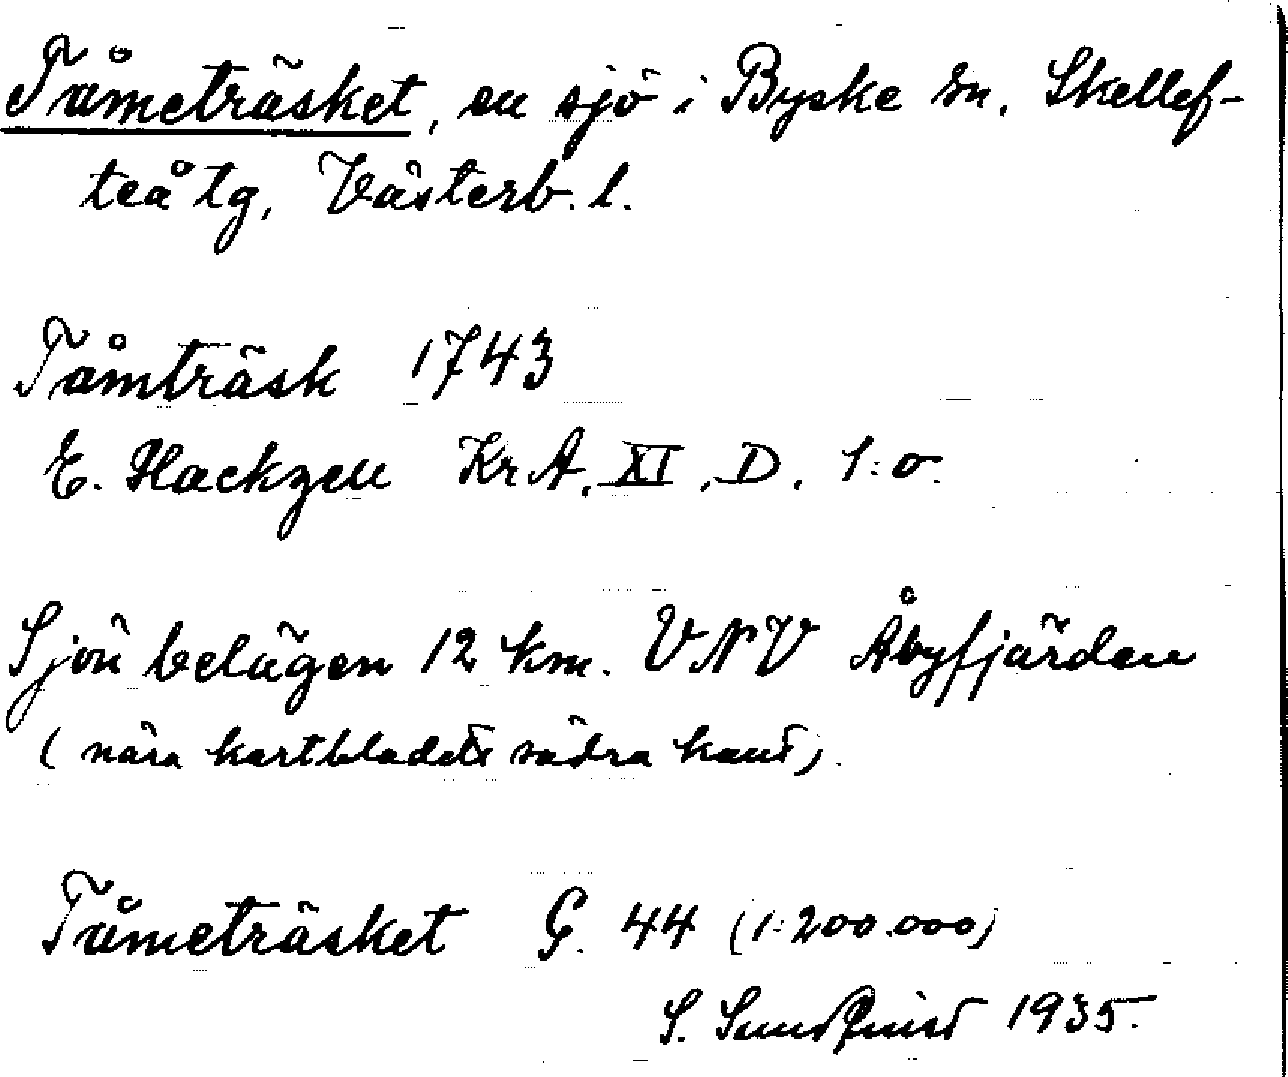 Tåmeträsket, en sjö i Byske sn, Skellef-
teå tg, Västerb. l.
Tåmträsk 1743
E. Hackzell Kr A, XI, D, 1:o.
Sjön belägen 12 km. VNV Åbyfjärden
(nära kartbladets södra kant).
Tåmeträsket G. 44 (1:200.000)
S. Sundquist 1935.